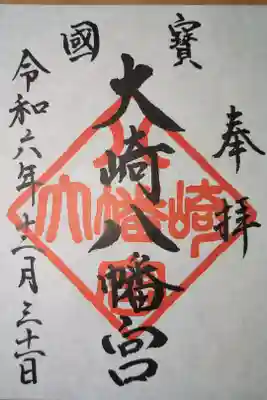 國寶
奉拝
大崎八幡宮
令和六年十二月三十一日
大崎八幡宮